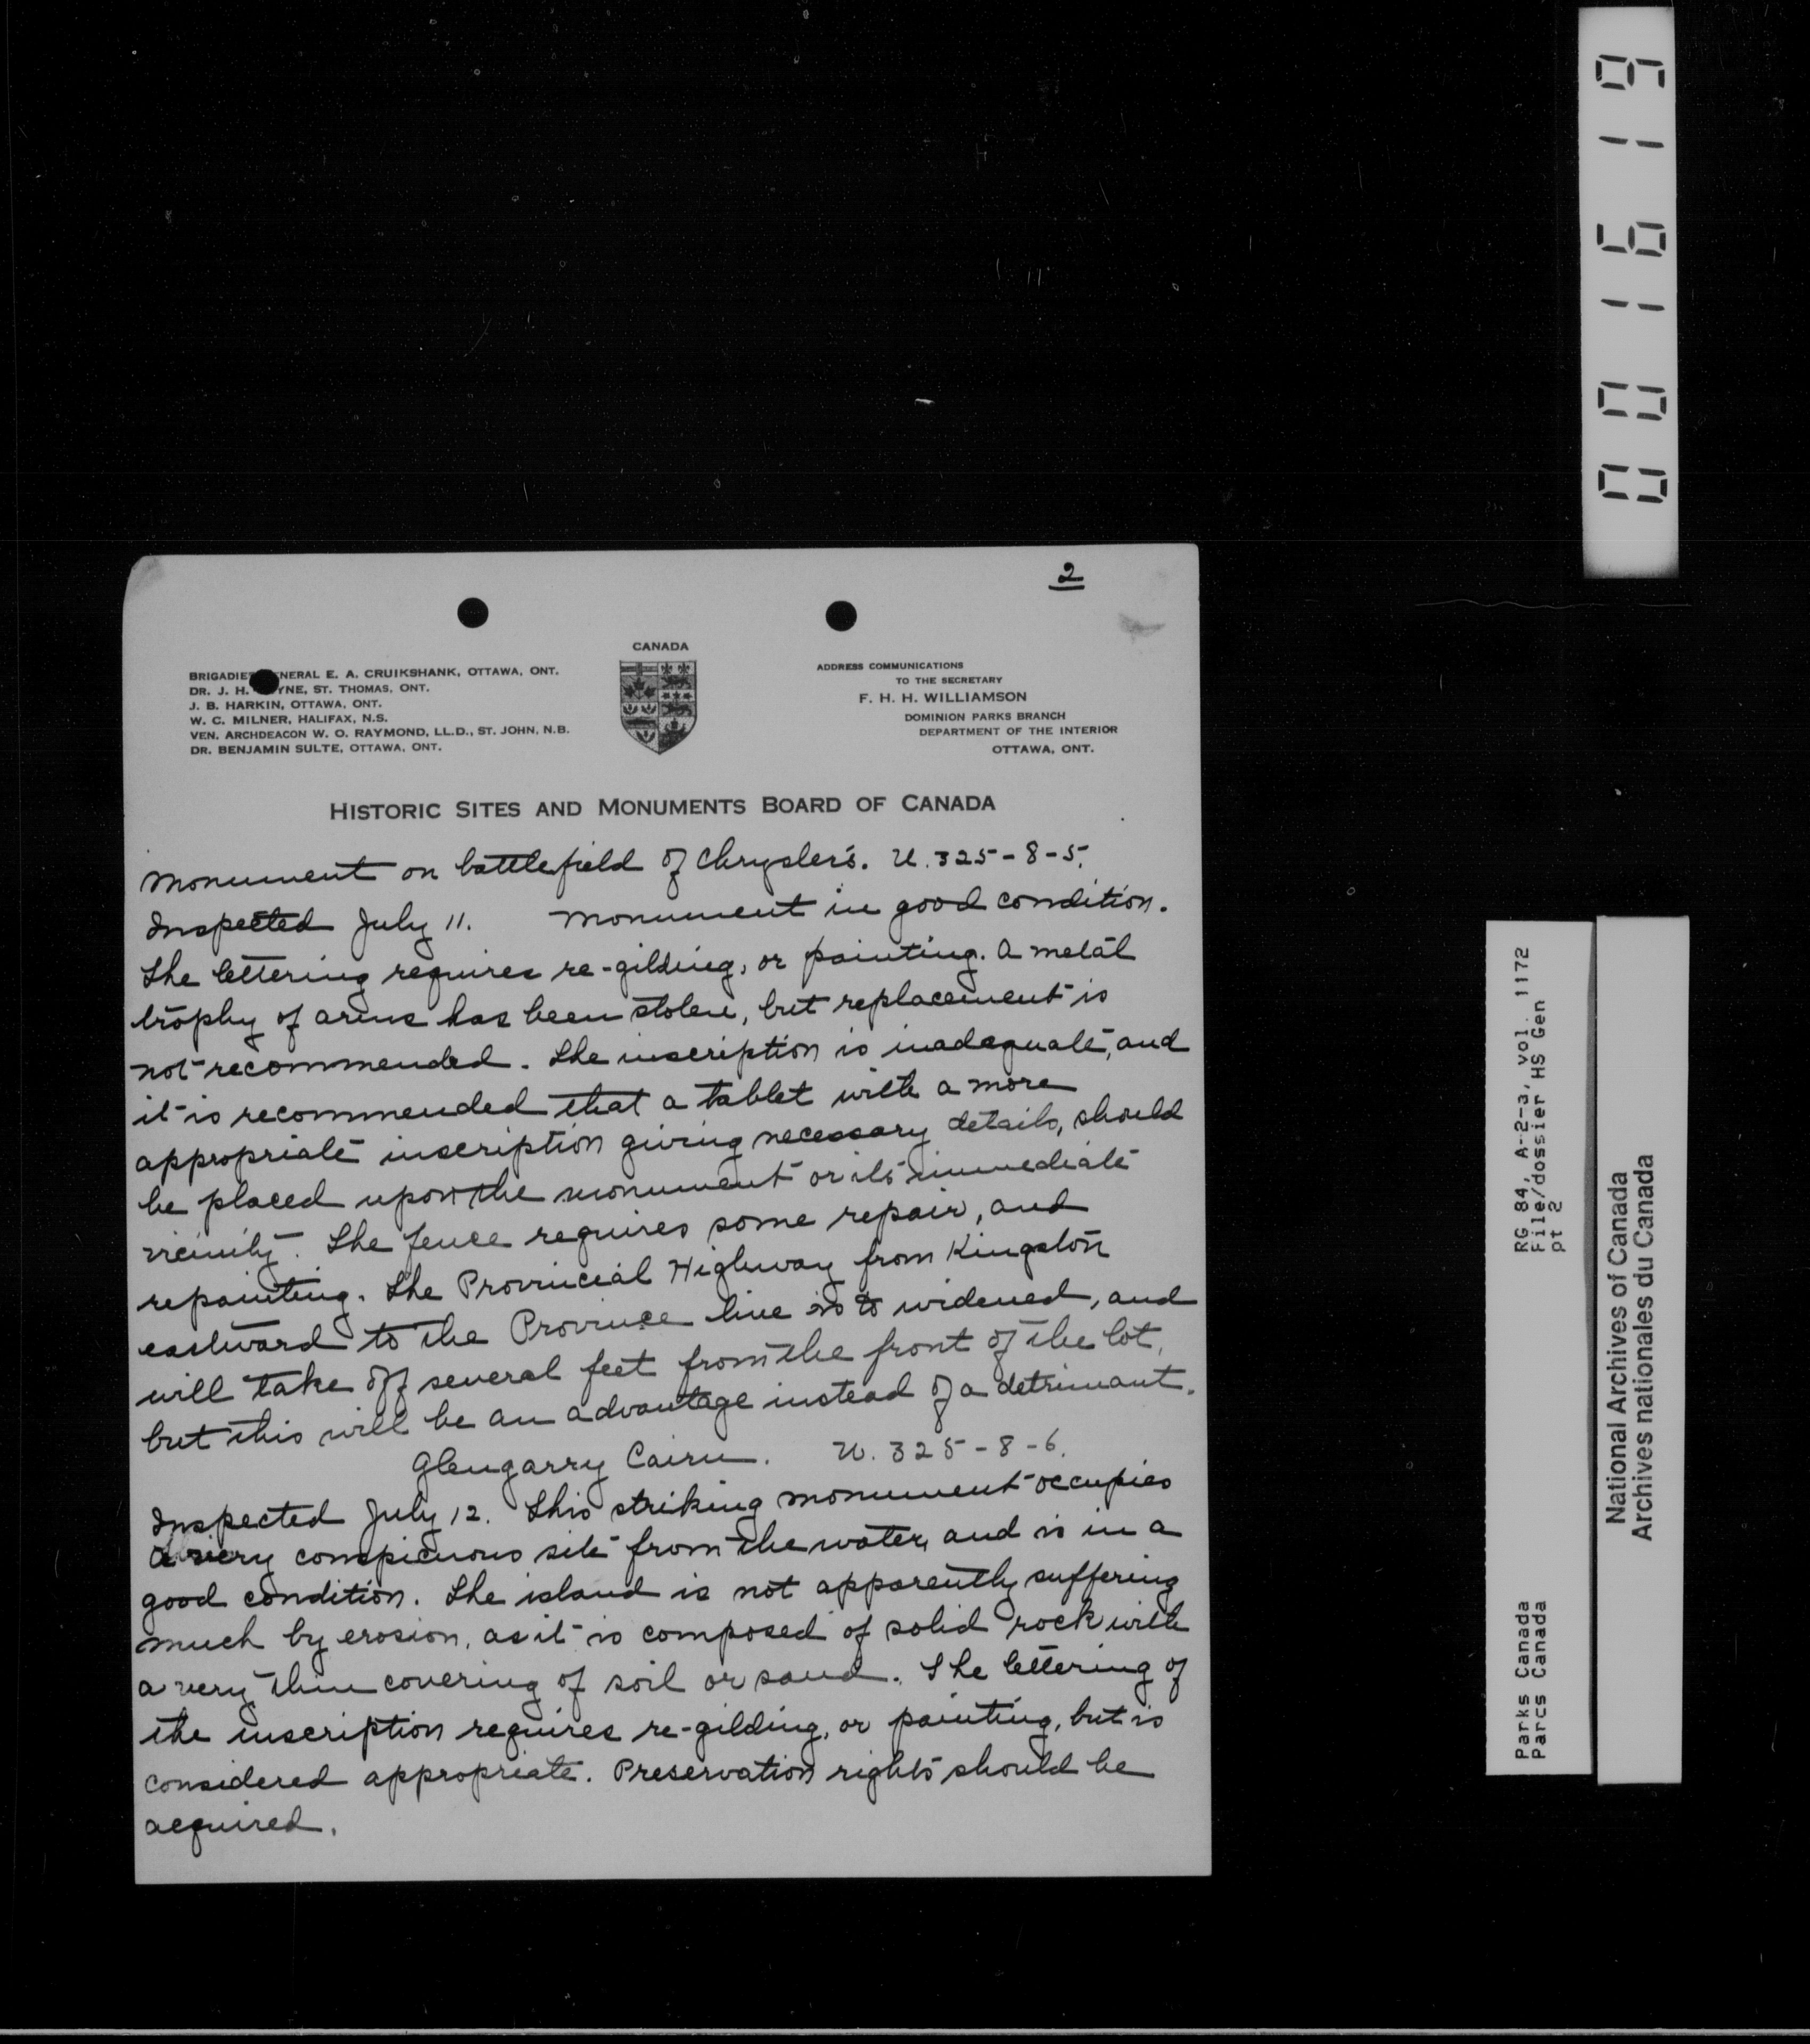 2
CANADA
BRIGADIE NERAL E. A. CRUIKSHANK, OTTAWA, ONT.
DR. J. H. YNE, ST. THOMAS, ONT.
J. B. HARKIN, OTTAWA, ONT.
W. C. MILNER, HALIFAX, N.S.
VEN. ARCHDEACON W. O. RAYMOND, LL.D., ST. JOHN, N.B.
DR. BENJAMIN SULTE, OTTAWA, ONT.
ADDRESS COMMUNICATIONS
TO THE SECRETARY
F. H. H. WILLIAMSON
DOMINION PARKS BRANCH
DEPARTMENT OF THE INTERIOR
OTTAWA, ONT.
HISTORIC SITES AND MONUMENTS BOARD OF CANADA
Monument on battlefield of Chrysler's. U. 325-8-5.
Inspected July 11. Monument in good condition.
The lettering requires re-gilding, or painting. A metal
trophy of arms has been stolen, but replacement is
not recommended. The inscription is inadequate, and
it is recommended that a tablet with a more
appropriate inscription giving necessary details, should
be placed upon the monument or its immediate
vicinity. The fence requires some repair, and
repainting. The Provincial Highway from Kingston
eastward to the Province line is to widened, and
will take off several feet from the front of the lot,
but this will be an advantage instead of a detrimant.
Glengarry Cairn. U. 325-8-6.
Inspected July 12. This striking monument occupies
a very conspicuous site from the water, and is in a
good condition. The island is not apparently suffering
much by erosion, as it is composed of solid rock with
a very thin covering of soil or sand. The lettering of
the inscription requires re-gilding, or painting, but is
considered appropriate. Preservation rights should be
acquired.
001619
RG 84, A-2-a, vol. 1172
File/dossier HS Gen
pt 2
Parks Canada
Parcs Canada
National Archives of Canada
Archives nationales du Canada